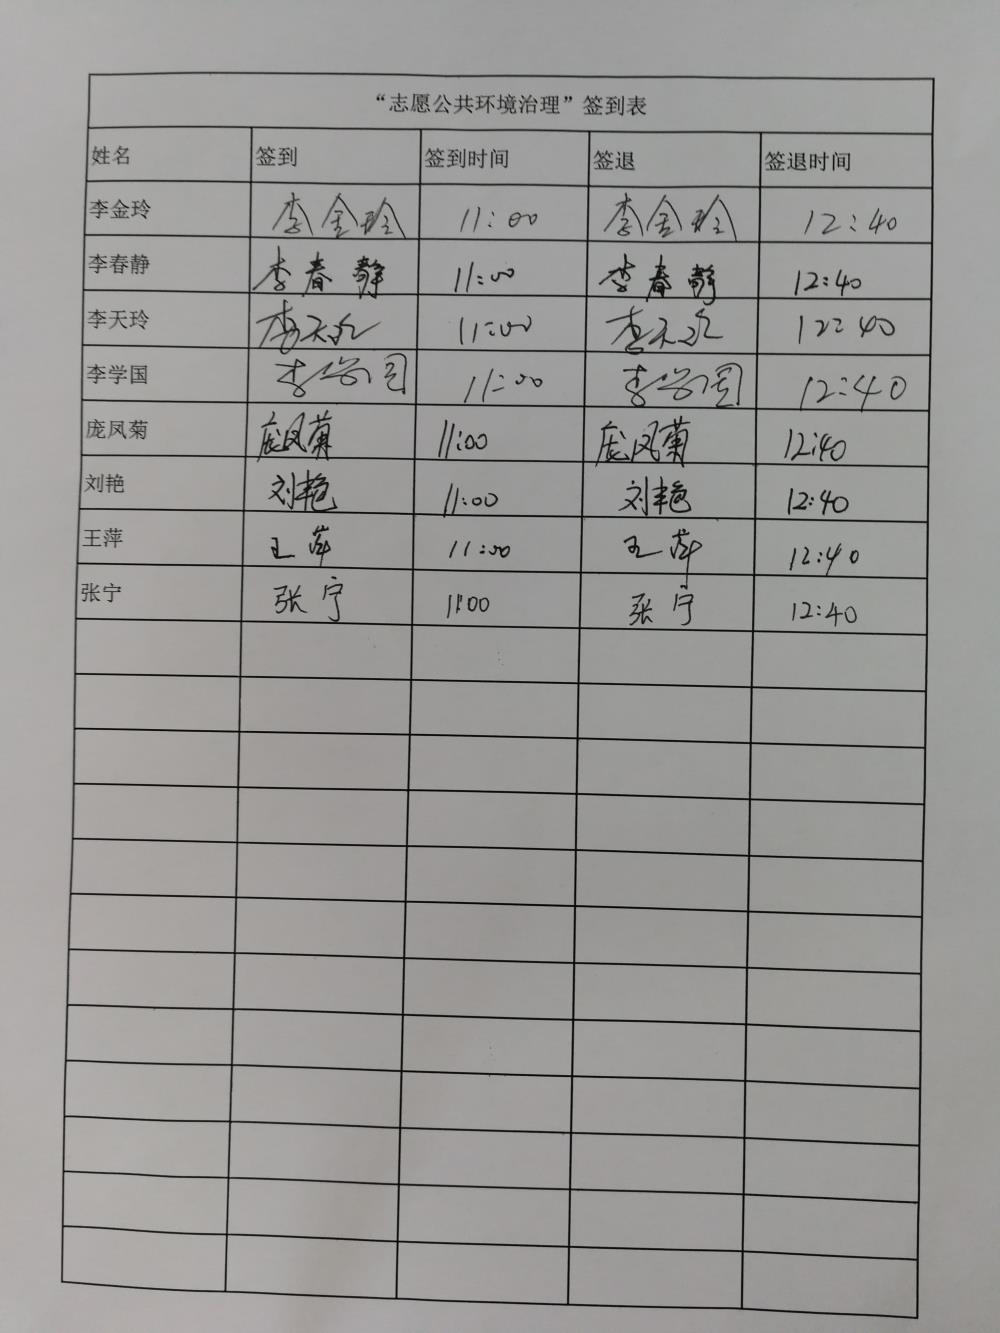 “志愿公共环境治理”签到表
姓名 签到 签到时间 签退 签退时间
李金玲 李金玲 11:00 李金玲 12:40
李春静 李春静 11:00 李春静 12:40
李天玲 李天玲 11:00 李天玲 12:40
李学国 李学国 11:00 李学国 12:40
庞凤菊 庞凤菊 11:00 庞凤菊 12:40
刘艳 刘艳 11:00 刘艳 12:40
王萍 王萍 11:00 王萍 12:40
张宁 张宁 11:00 张宁 12:40